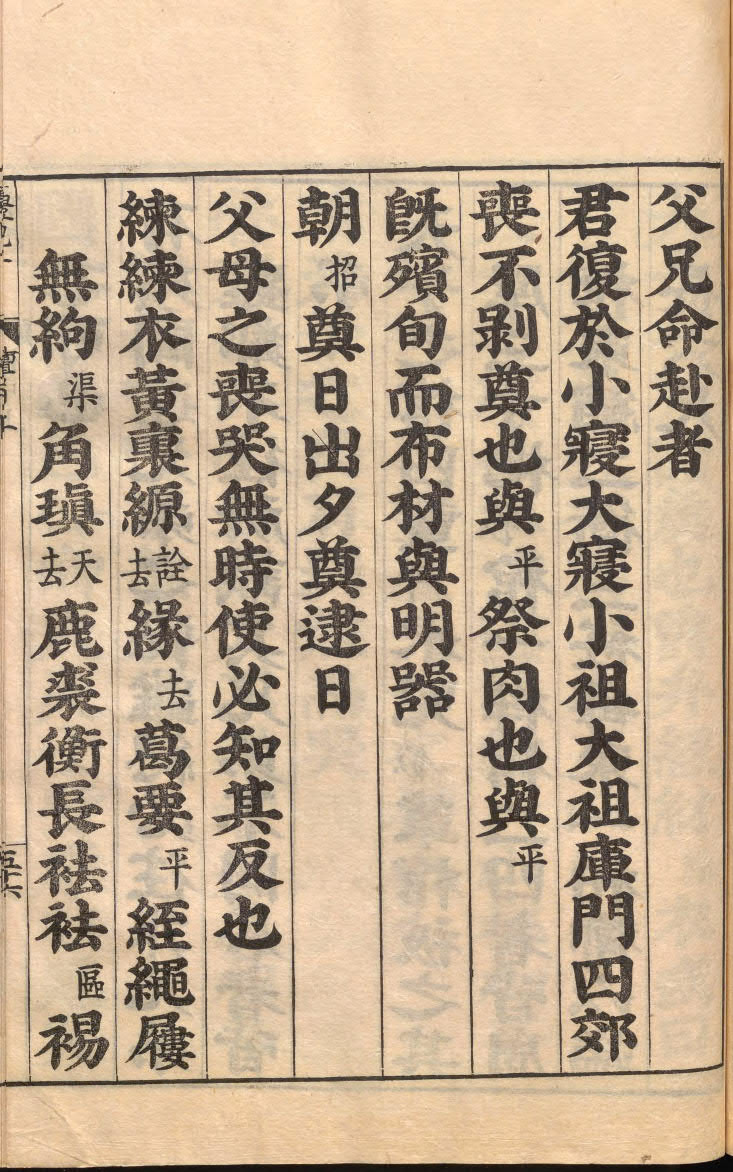 父兄命赴者
君復於小寢大寢小祖大祖庫門四郊
喪不剥奠也與平祭肉也與平
旣殯旬而布材與明器
朝招奠日出夕奠逮日
父母之喪哭無時使必知其反也
練練衣黃裏縓詮去緣去葛要平絰繩屨
無絇渠角瑱天去鹿裘衡長袪袪區裼